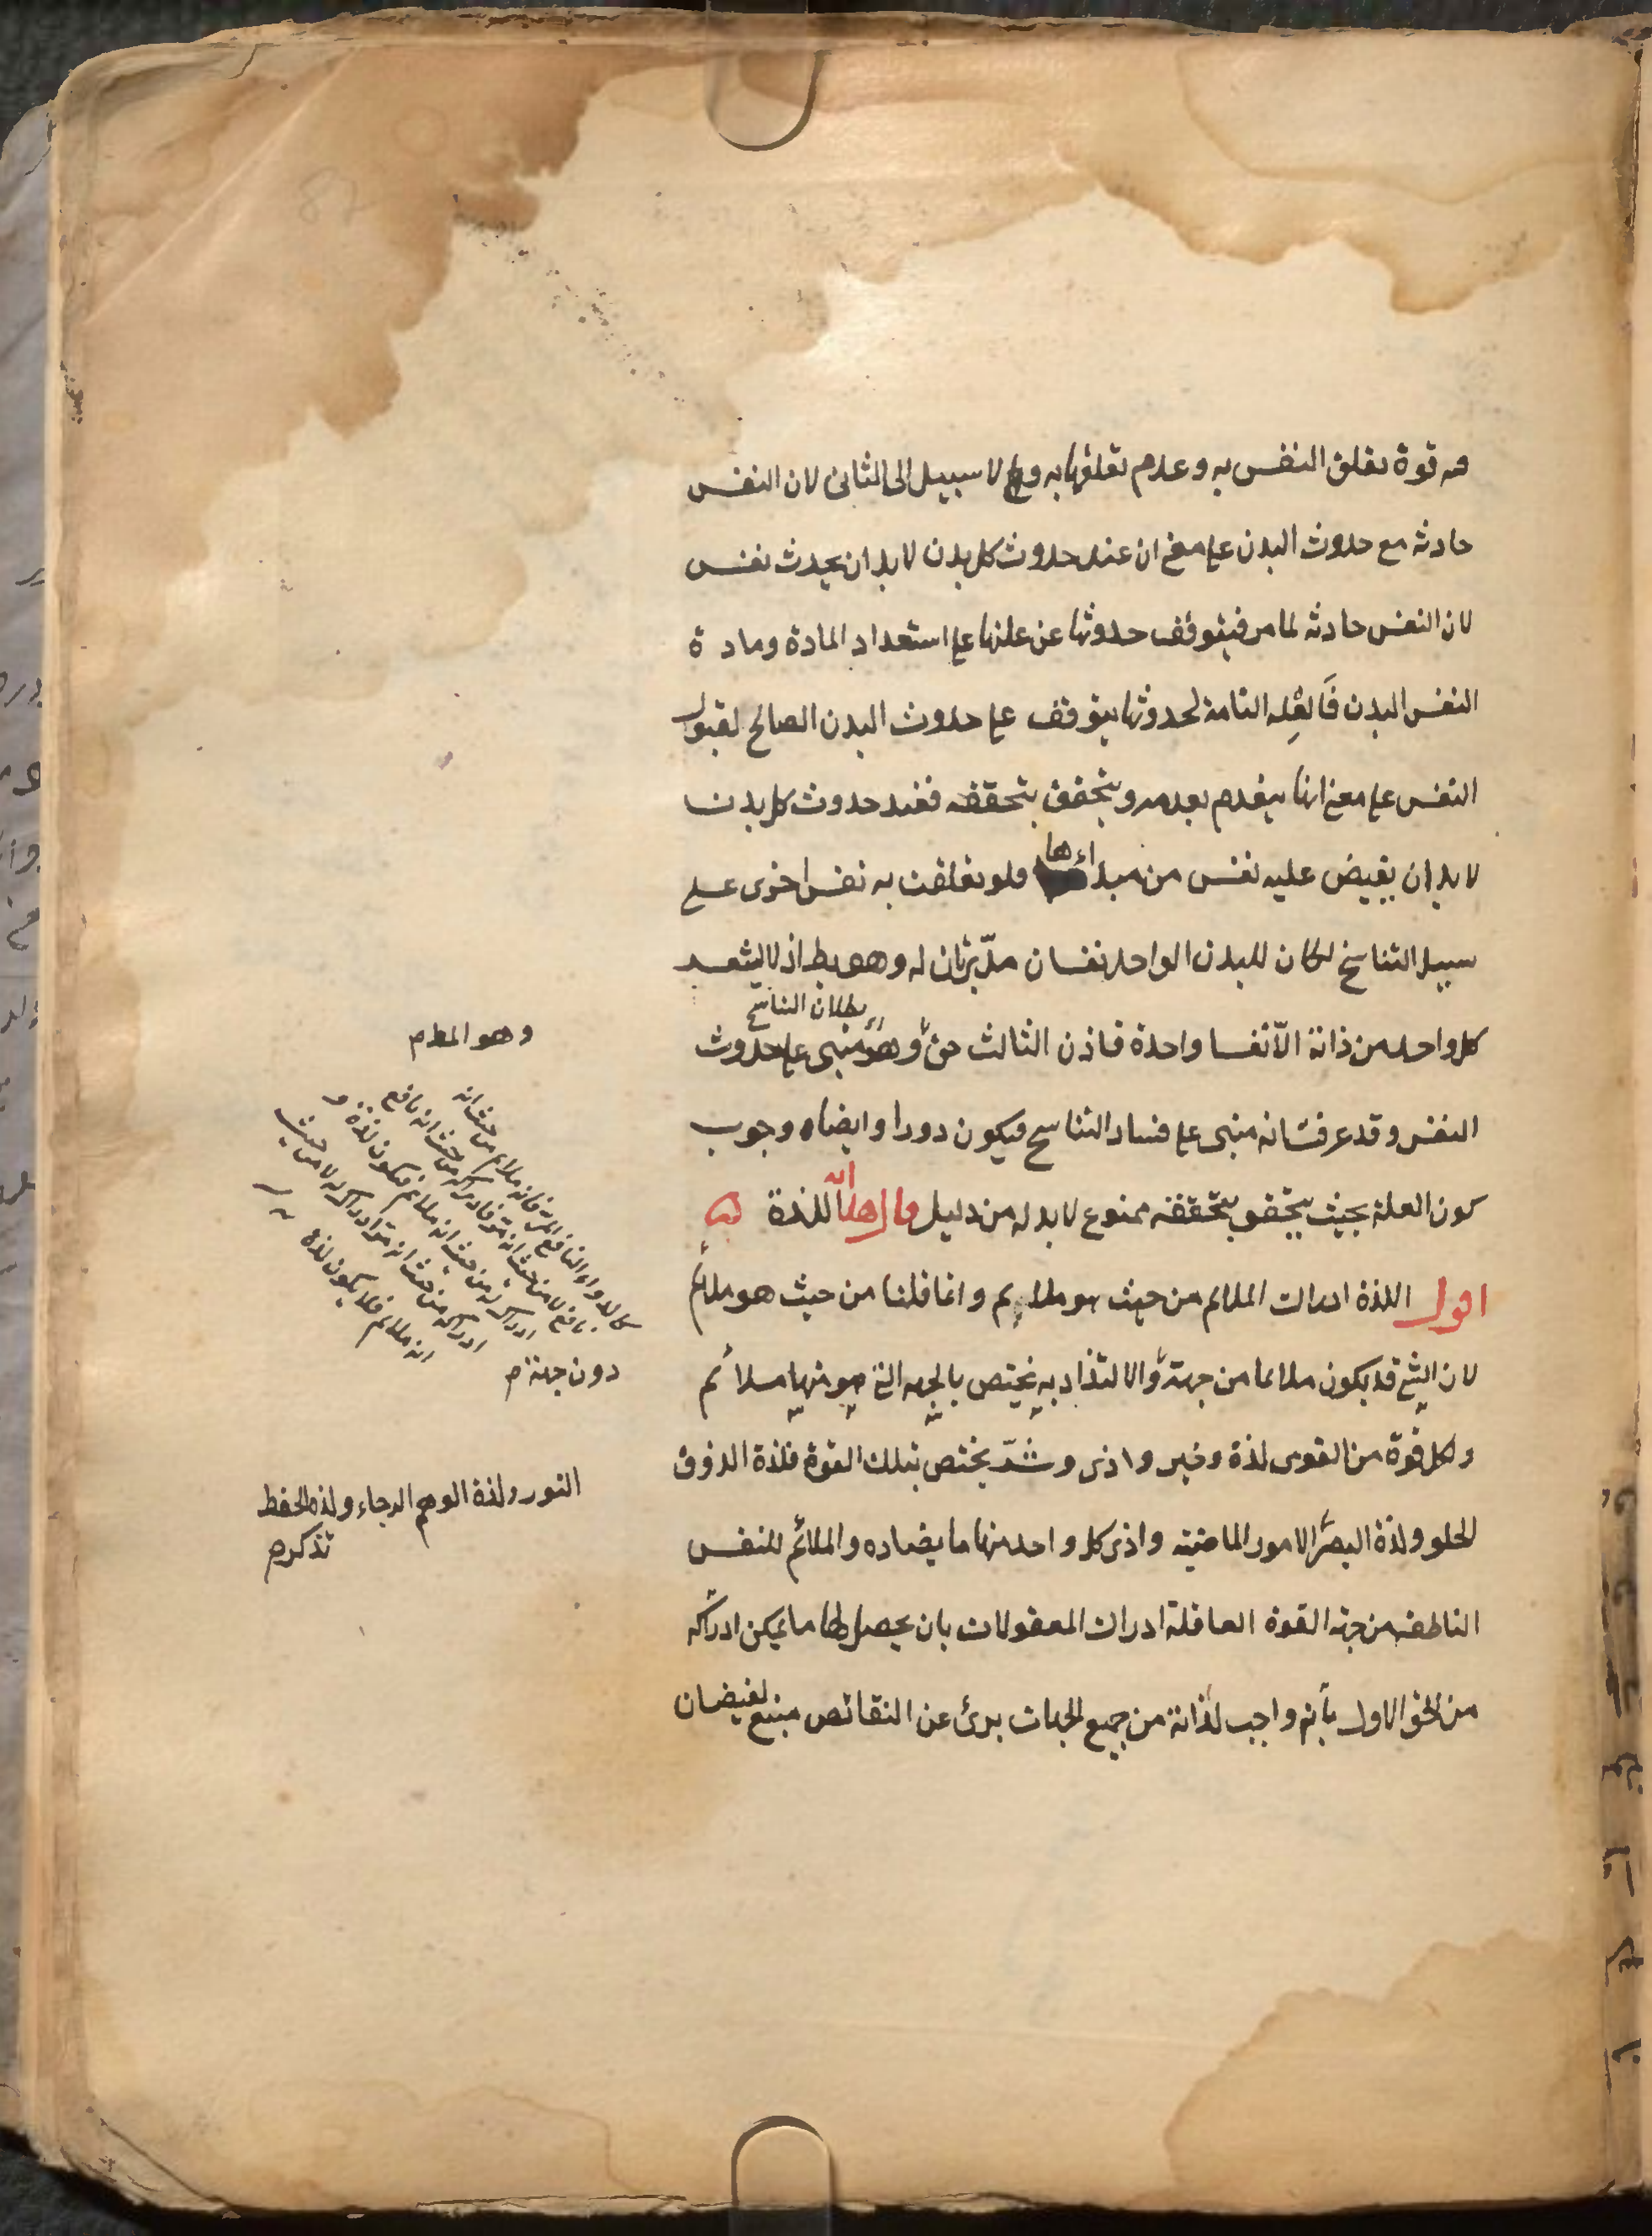 فيه قوة تعلق النفس به وعدم تعلقها به ولا سبيل الى الثانى لان النفس
حادثة مع حدوث البدن على معنى ان عند حدوث كل بدن لا بد ان يحدث نفس
لان النفس حادثة لما مر فيتوقف حدوثها عن علتها على استعداد المادة ومادة
النفس البدن فالعلة التامة لحدوثها يتوقف على حدوث البدن الصالح لقبول
النفس على معنى انها ينعدم بعدمه ويتحقق بتحققه فعند حدوث كل بدن
لا بد ان يفيض عليه نفس من مبداءها فلو تعلقت به نفس اخرى على
سبيل التناسخ لكان للبدن الواحد نفسان مدبرتان له وهو بط اذ لا يشعر
اى بطلان التناسخ
كل واحد من ذاته الا نفسا واحدة فاذن الثالث حق وهو مبنى على حدوث
وهو المط م
النفس وقد عرفت انه مبنى على فساد التناسخ فيكون دورا وايضا وجوب
كون العلة بحيث يتحقق بتحققه ممنوع لا بد له من دليل قال هداية اللذة
اقول اللذة ادراك الملائم من حيث هو ملايم وانما قلنا من حيث هو ملائم
لان الشئ قد يكون ملائما من جهة والالتذاذ به يختص بالجهة التى هو منها ملائم
ولكل قوة من القوى لذة وخير واذى وشر يختص بتلك القوة فلذة الذوق
الحلو ولذة البصر الامور الماضية واذى كل واحد منها ما يضاده والملائم للنفس
الناطقة من جهة القوة العاقلة ادراك المعقولات بان يحصل لها ما يمكن ادراكه
من الحق الاول بأنه واجب لذاته من جميع الجهات برئ عن النقائص منبع لفيضان
كالدواء النافع المر فانه ملائم من حيث انه
نافع لا من حيث انه مر فادراكه من حيث انه نافع
ادراك له من حيث انه ملائم فيكون لذة و
ادراكه من حيث انه مر ادراك له لا من حيث
انه ملائم فلا يكون لذة
دون جهة م
النور ولذة الوهم الرجاء ولذة الحفظ
تذكر م